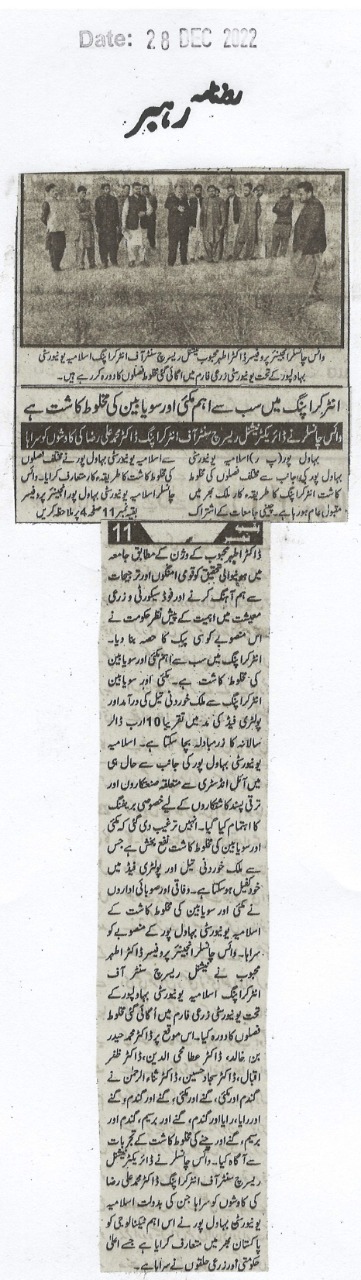 Date: 28 DEC 2022
روزنامہ رہبر
وائس چانسلر انجینئر پروفیسر ڈاکٹر اطہر محبوب نیشنل ریسرچ سنٹر آف انٹر کراپنگ اسلامیہ یونیورسٹی
بہاولپور کے تحت یونیورسٹی زرعی فارم میں اگائی گئی مخلوط فصلوں کا دورہ کر رہے ہیں۔
انٹرکراپنگ میں سب سے اہم مکئی اور سویابین کی مخلوط کاشت ہے
وائس چانسلر نے ڈائریکٹر نیشنل ریسرچ سنٹر آف انٹر کراپنگ ڈاکٹر محمد علی رضا کی کاوشوں کو سراہا
بہاول پور (پ ر) اسلامیہ یونیورسٹی
بہاول پور کی جانب سے مختلف فصلوں کی مخلوط
کاشت انٹرکراپنگ کا طریقہ کار ملک بھر میں
مقبول عام ہو رہا ہے۔ چینی جامعات کے اشتراک
سے اسلامیہ یونیورسٹی بہاول پور نے مختلف فصلوں
کی مخلوط کاشت کا طریقہ کار متعارف کرایا۔ وائس
چانسلر اسلامیہ یونیورسٹی بہاول پور انجینئر پروفیسر
بقیہ نمبر 11 صفحہ 4 پر ملاحظہ کریں
بقیہ نمبر 11
ڈاکٹر اطہر محبوب کے وژن کے مطابق جامعہ
میں ہونیوالی تحقیق کو قومی امنگوں اور ترجیحات
سے ہم آہنگ کرنے اور فوڈ سیکورٹی و زرعی
معیشت میں اہمیت کے پیش نظر حکومت نے
اس منصوبے کو سی پیک کا حصہ بنا دیا۔
انٹرکراپنگ میں سب سے اہم مکئی اور سویابین
کی مخلوط کاشت ہے۔ مکئی اور سویابین
انٹرکراپنگ سے ملک خوردنی تیل کی درآمد اور
پولٹری فیڈ کی مد میں تقریبا 10 ارب ڈالر
سالانہ کا زرمبادلہ بچا سکتا ہے۔ اسلامیہ
یونیورسٹی بہاول پور کی جانب سے حال ہی
میں آئل انڈسٹری سے متعلقہ صنعتکاروں اور
ترقی پسند کاشتکاروں کے لیے خصوصی بریفنگ
کا اہتمام کیا گیا۔ انہیں ترغیب دی گئی کہ مکئی
اور سویابین کی مخلوط کاشت نفع بخش ہے جس
سے ملک خوردنی تیل اور پولٹری فیڈ میں
خودکفیل ہو سکتا ہے۔ وفاقی اور صوبائی اداروں
نے مکئی اور سویابین کی مخلوط کاشت کے
اسلامیہ یونیورسٹی بہاول پور کے منصوبے کو
سراہا۔ وائس چانسلر انجینئر پروفیسر ڈاکٹر اطہر
محبوب نے نیشنل ریسرچ سنٹر آف
انٹرکراپنگ اسلامیہ یونیورسٹی بہاولپور کے
تحت یونیورسٹی زرعی فارم میں اُگائی گئی مخلوط
فصلوں کا دورہ کیا۔ اس موقع پر ڈاکٹر محمد حیدر
بن خالد، ڈاکٹر عطا محی الدین، ڈاکٹر ظفر
اقبال، ڈاکٹر سجاد حسین، ڈاکٹر ثناء الرحمٰن نے
گندم اور مکئی، گنے اور مکئی، گنے اور گندم و گنے
اور رایا، رایا اور گندم، گنے اور برسیم، گندم اور
برسیم، گنے اور چنے کی مخلوط کاشت کے تجربات
سے آگاہ کیا۔ وائس چانسلر نے ڈائریکٹر نیشنل
ریسرچ سنٹر آف انٹرکراپنگ ڈاکٹر محمد علی رضا
کی کاوشوں کو سراہا جن کی بدولت اسلامیہ
یونیورسٹی بہاول پور نے اس اہم ٹیکنالوجی کو
پاکستان بھر میں متعارف کرایا ہے جسے اعلیٰ
حکومتی اور زرعی حلقوں نے سراہا ہے۔